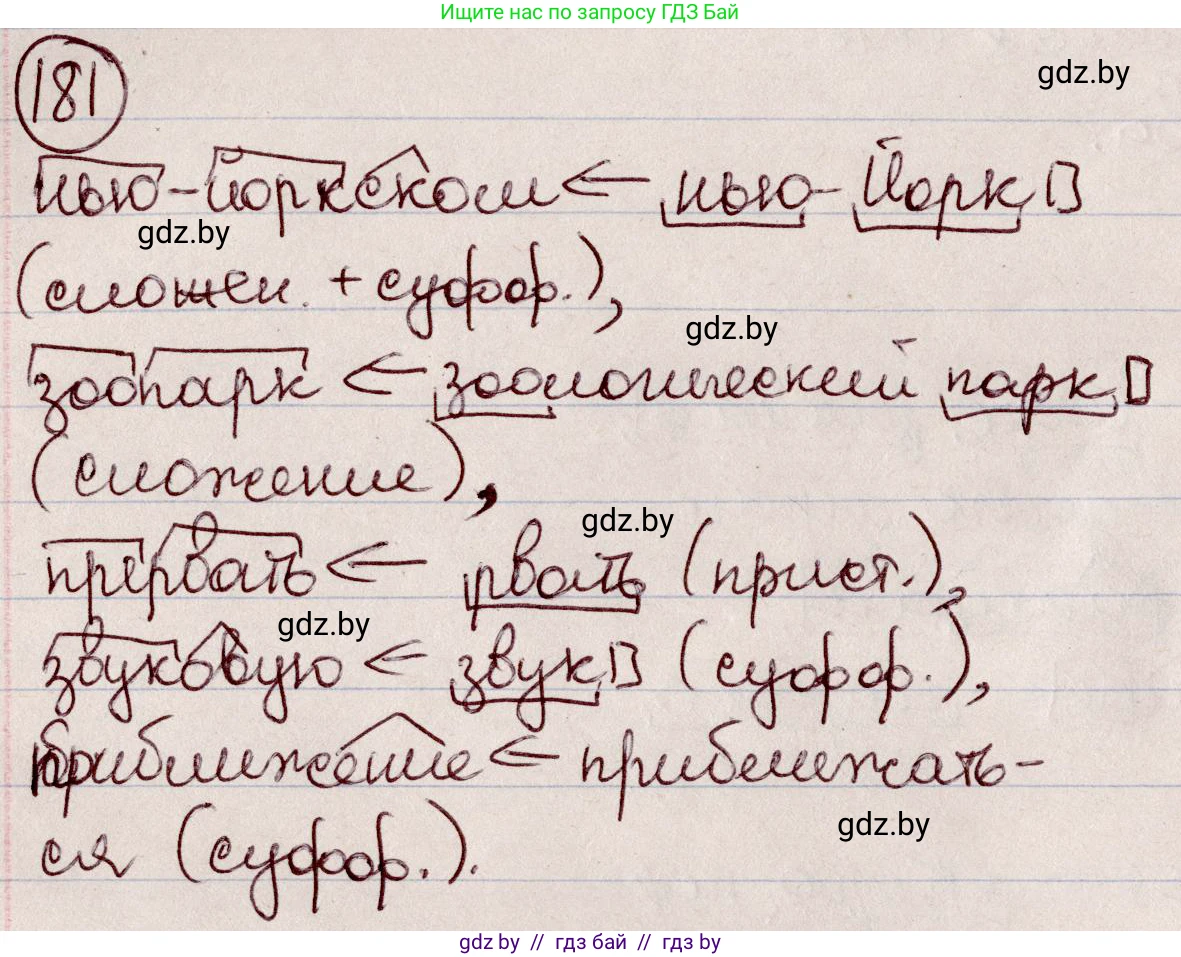 Ищите нас по запросу ГДЗ Бай
181
gdz.by
нью-йоркском ← нью-Йорк
gdz.by
(сложен. + суфф.),
gdz.by
зоопарк ← зоологический парк
(сложение),
gdz.by
прервать ← рвать (прист.),
gdz.by
звуковую ← звук (суфф.),
приближение ← приближать-
gdz.by
ся (суфф.).
gdz by // гдз бай // гдз by